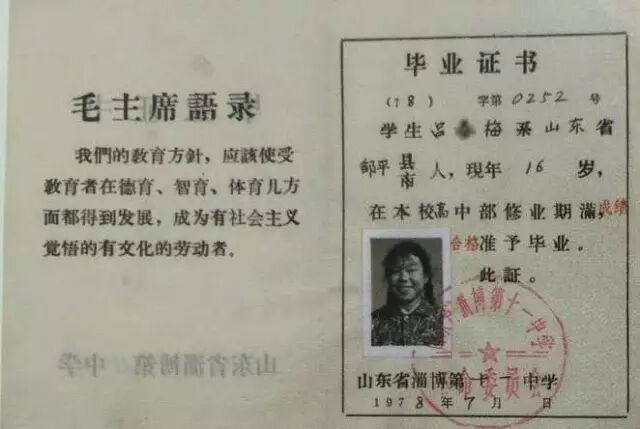 毛主席語录
我們的教育方針，应該使受
教育者在德育、智育、体育几方
面都得到发展，成为有社会主义
覚悟的有文化的劳动者。
毕业证书
（78） 字第0252号
学生吕 梅系山东省
邹平县市人，現年16岁，
在本校高中部修业期滿，成绩
合格准予毕业。
此証。
淄博第十一中学
革命委员会
山东省淄博第十一中学
1978年7月 日
山东省淄博第 中学